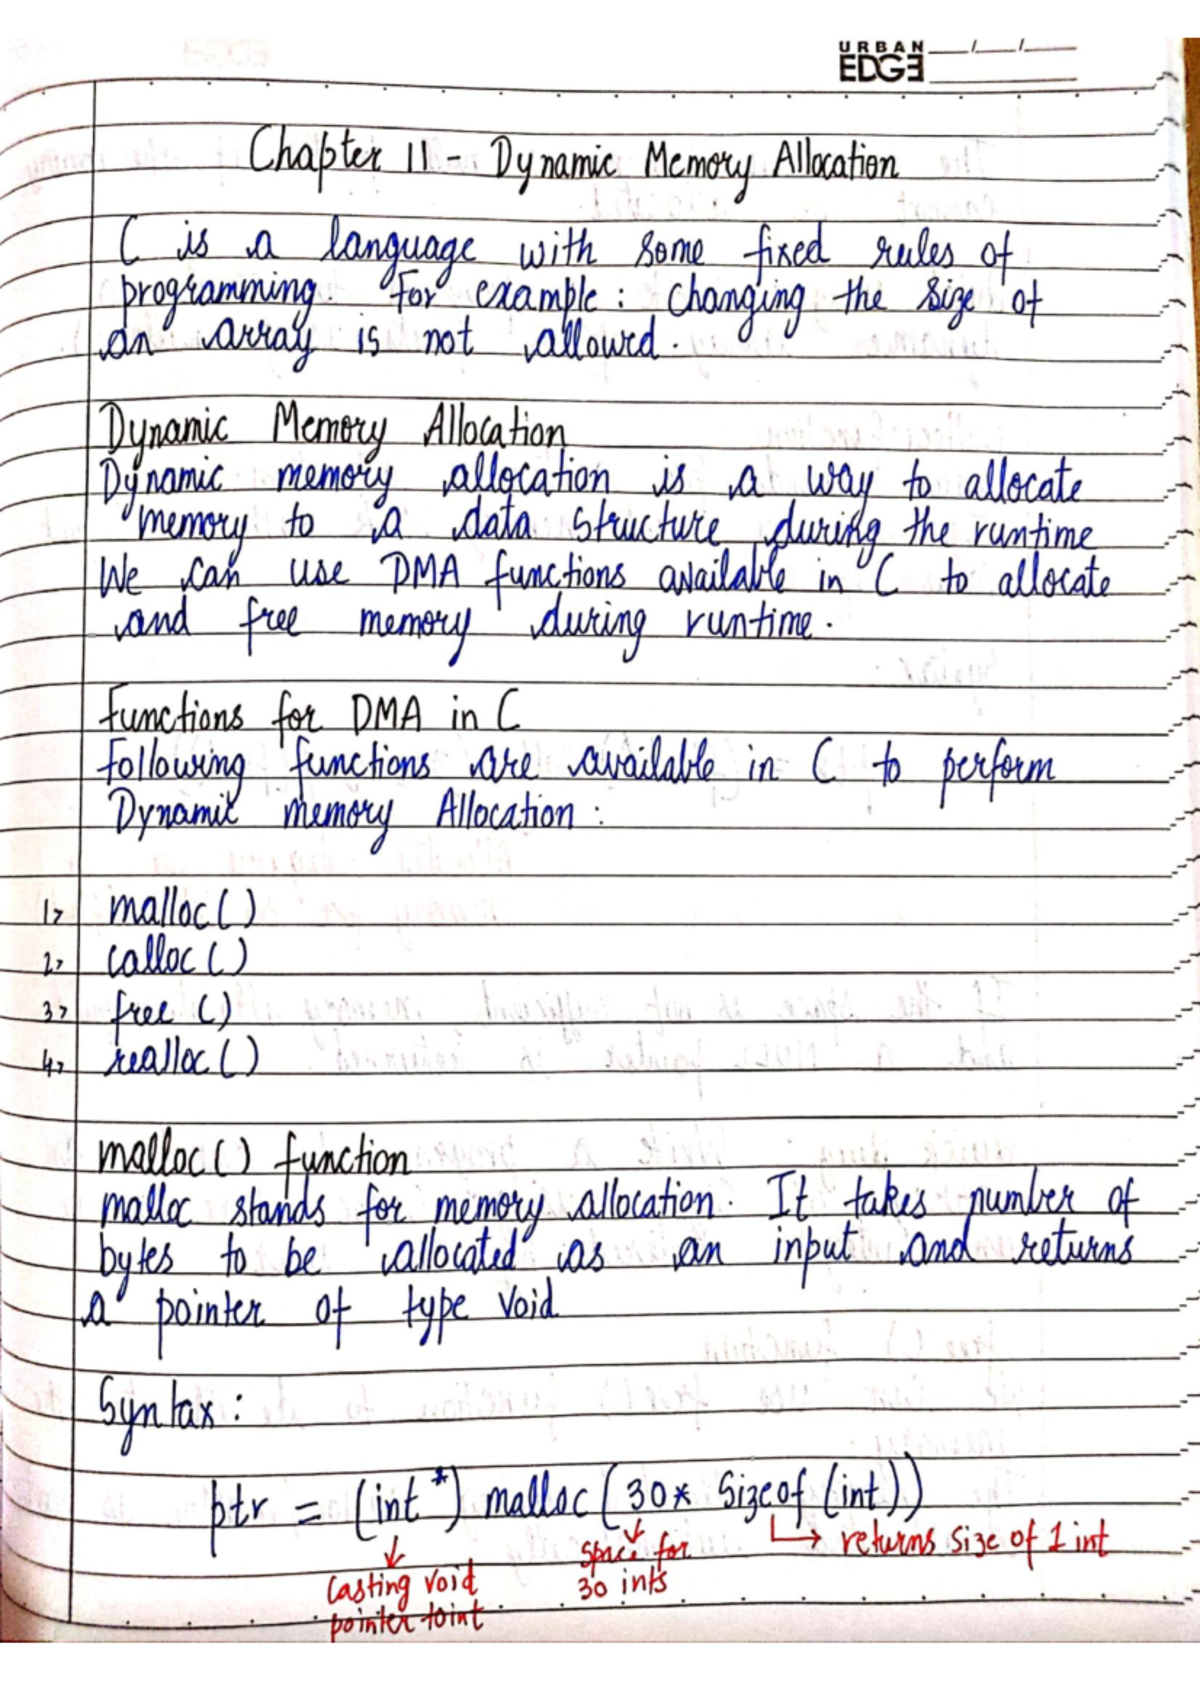 URBAN
EDGE
Chapter 11 - Dynamic Memory Allocation
C is a language with some fixed rules of
programming. For example: changing the size of
an array is not allowed.
Dynamic Memory Allocation
Dynamic memory allocation is a way to allocate
memory to a data structure during the runtime
We can use DMA functions available in C to allocate
and free memory during runtime.
Functions for DMA in C
Following functions are available in C to perform
Dynamic memory Allocation :
1> malloc()
2> calloc()
3> free()
4> realloc()
malloc() function
malloc stands for memory allocation. It takes number of
bytes to be allocated as an input and returns
a pointer of type void
Syntax :
ptr = (int *) malloc (30* Sizeof (int))
returns size of 1 int
Space for
30 ints
Casting void
pointer to int